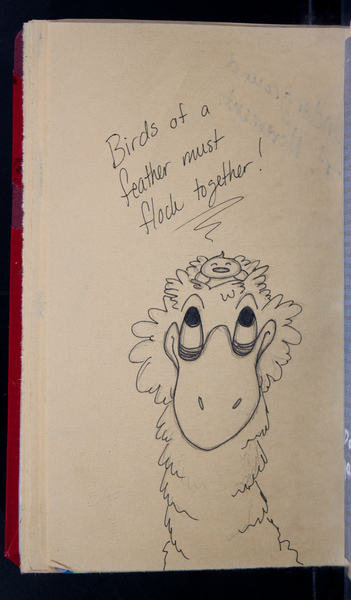 Birds of a
feather must
flock together!